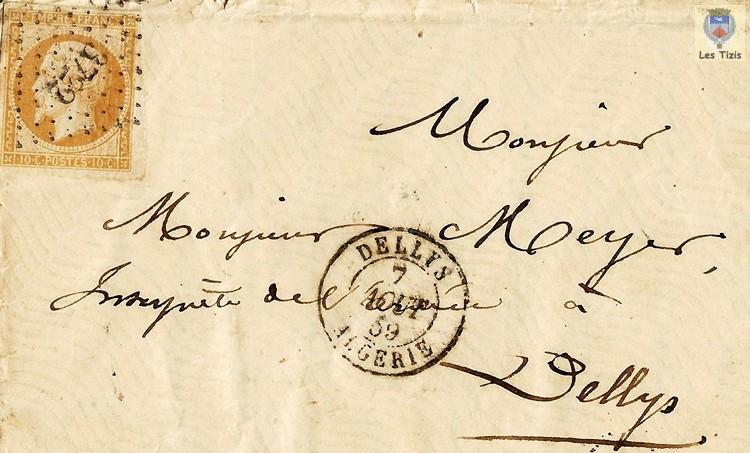 EMPIRE FRANC
10·C·POSTES·10·C
Les Tizis
Monsieur
Monsieur Meyer,
Interprète de l'armée à
Dellys
DELLYS
7
AOUT
59
ALGERIE